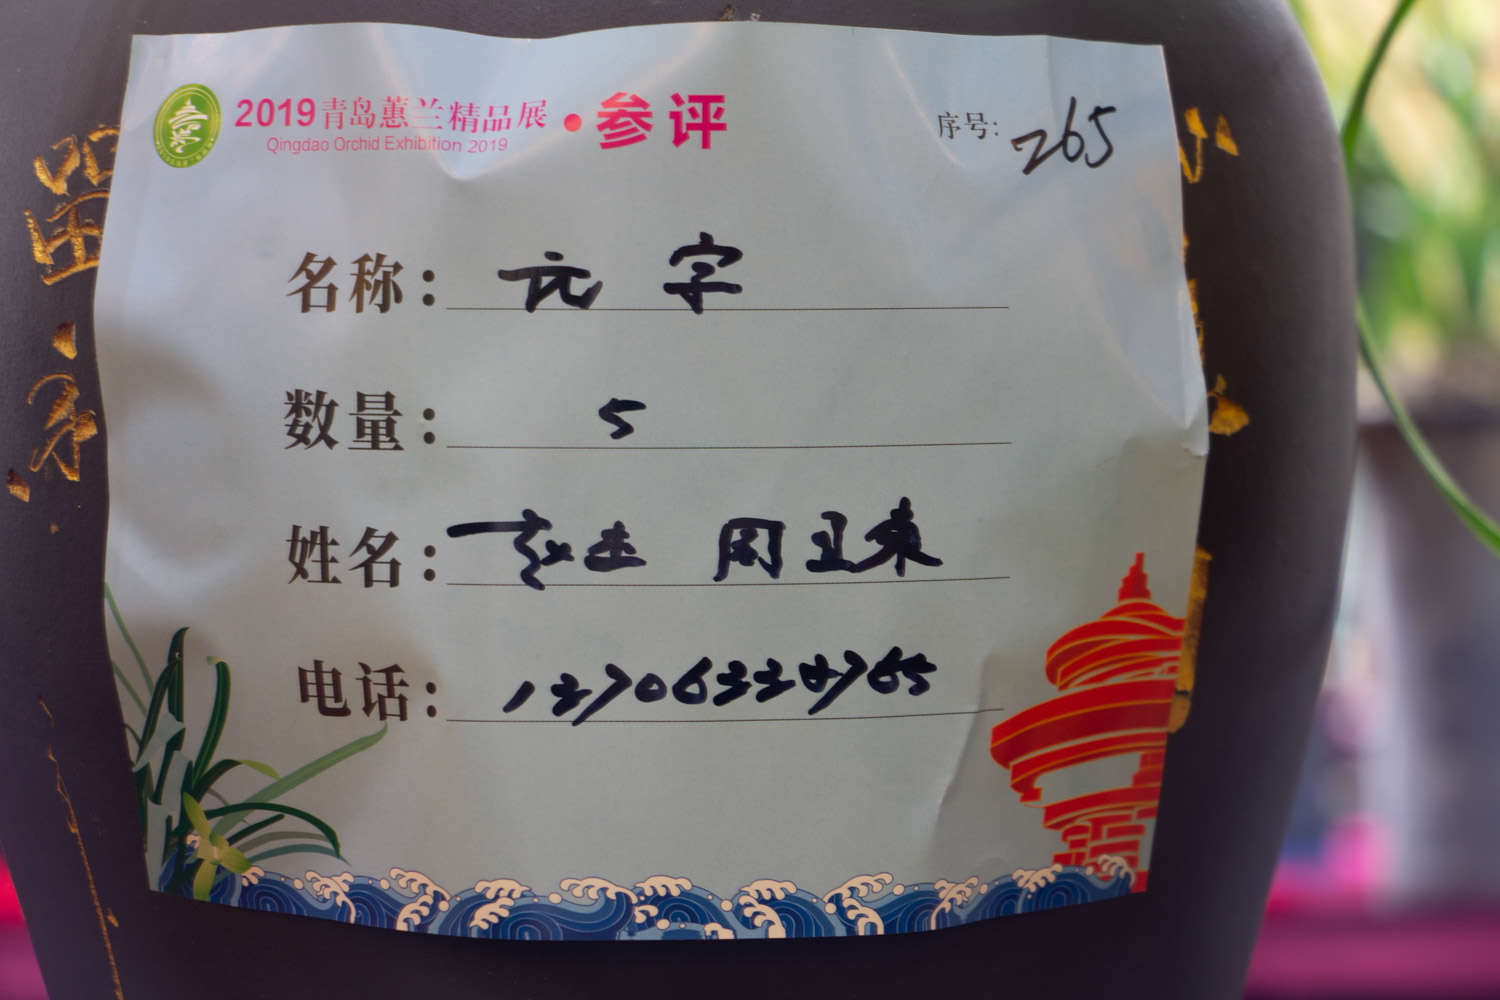 2019青岛蕙兰精品展•参评
Qingdao Orchid Exhibition 2019
序号: 265
名称: 元字
数量: 5
姓名: 周
电话: